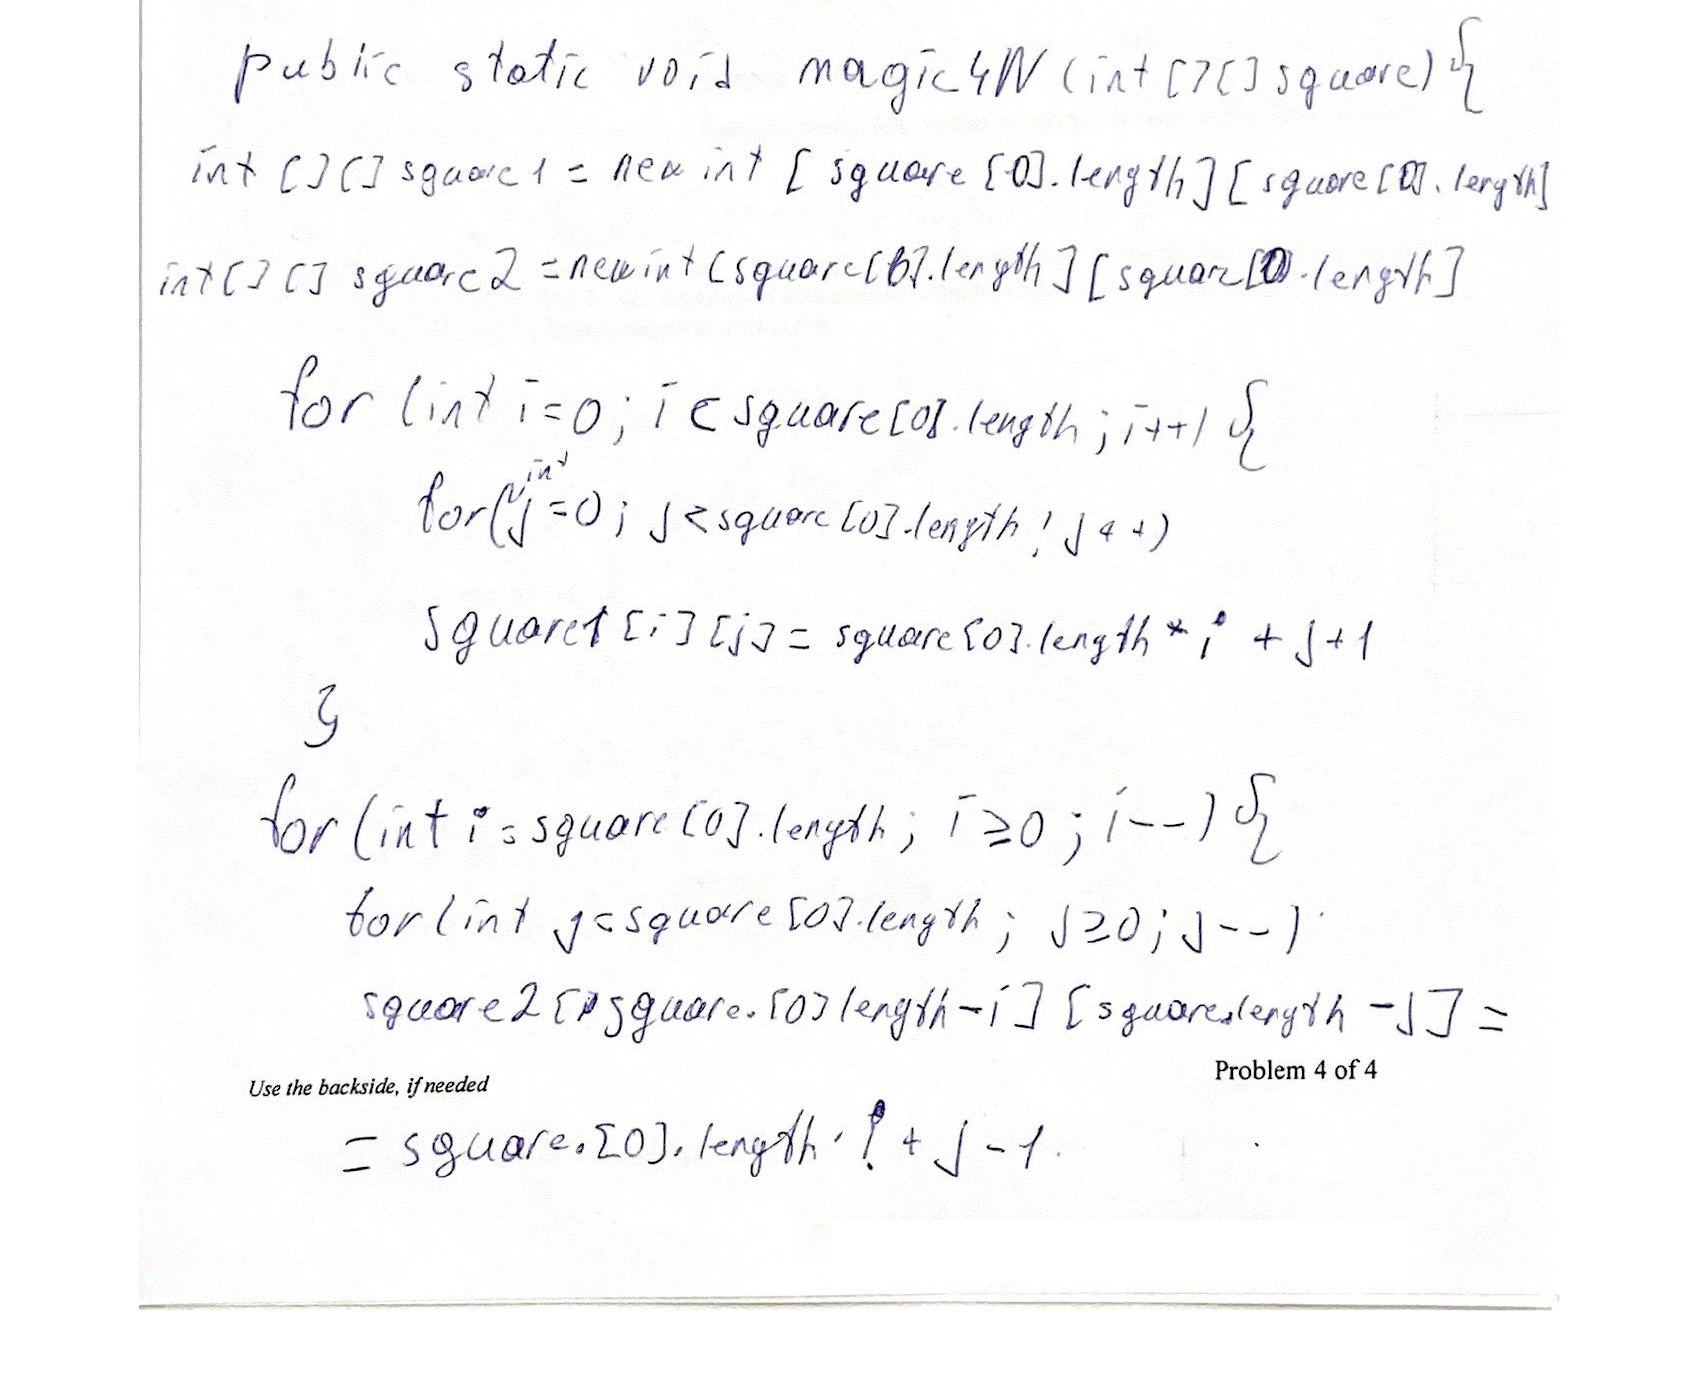 public static void magic4N (int [][] square) {
int [][] square1 = new int [ square [0].length] [ square [0]. length]
int [][] square2 = new int [square[0].length] [square[0].length]
for (int i=0; i < square[0].length; i++) {
for(int j=0; j < square [0].length; j++)
square1 [i] [j] = square [0].length * i + j+1
}
for (int i = square [0].length; i ≥ 0; i--) {
for (int j = square [0].length; j ≥ 0; j--)
square2 [square. [0] length - i] [square.length - j] =
Problem 4 of 4
Use the backside, if needed
= square.[0]. length · i + j - 1.